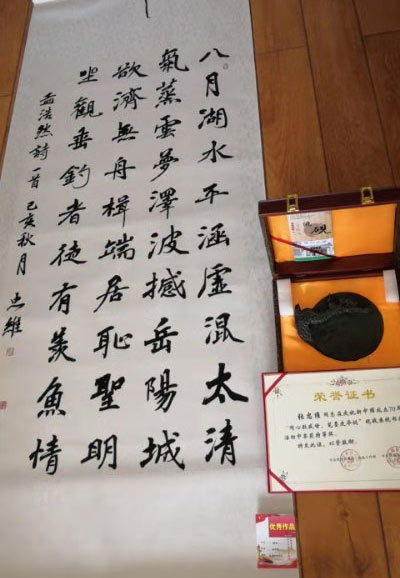 八月湖水平涵虛混太清
氣蒸雲夢澤波撼岳陽城
欲濟無舟楫端居恥聖明
坐觀垂釣者徒有羨魚情
孟浩然詩一首 己亥秋月 忠維
砚
荣誉证书
特发此证，以资鼓励。
优秀作品